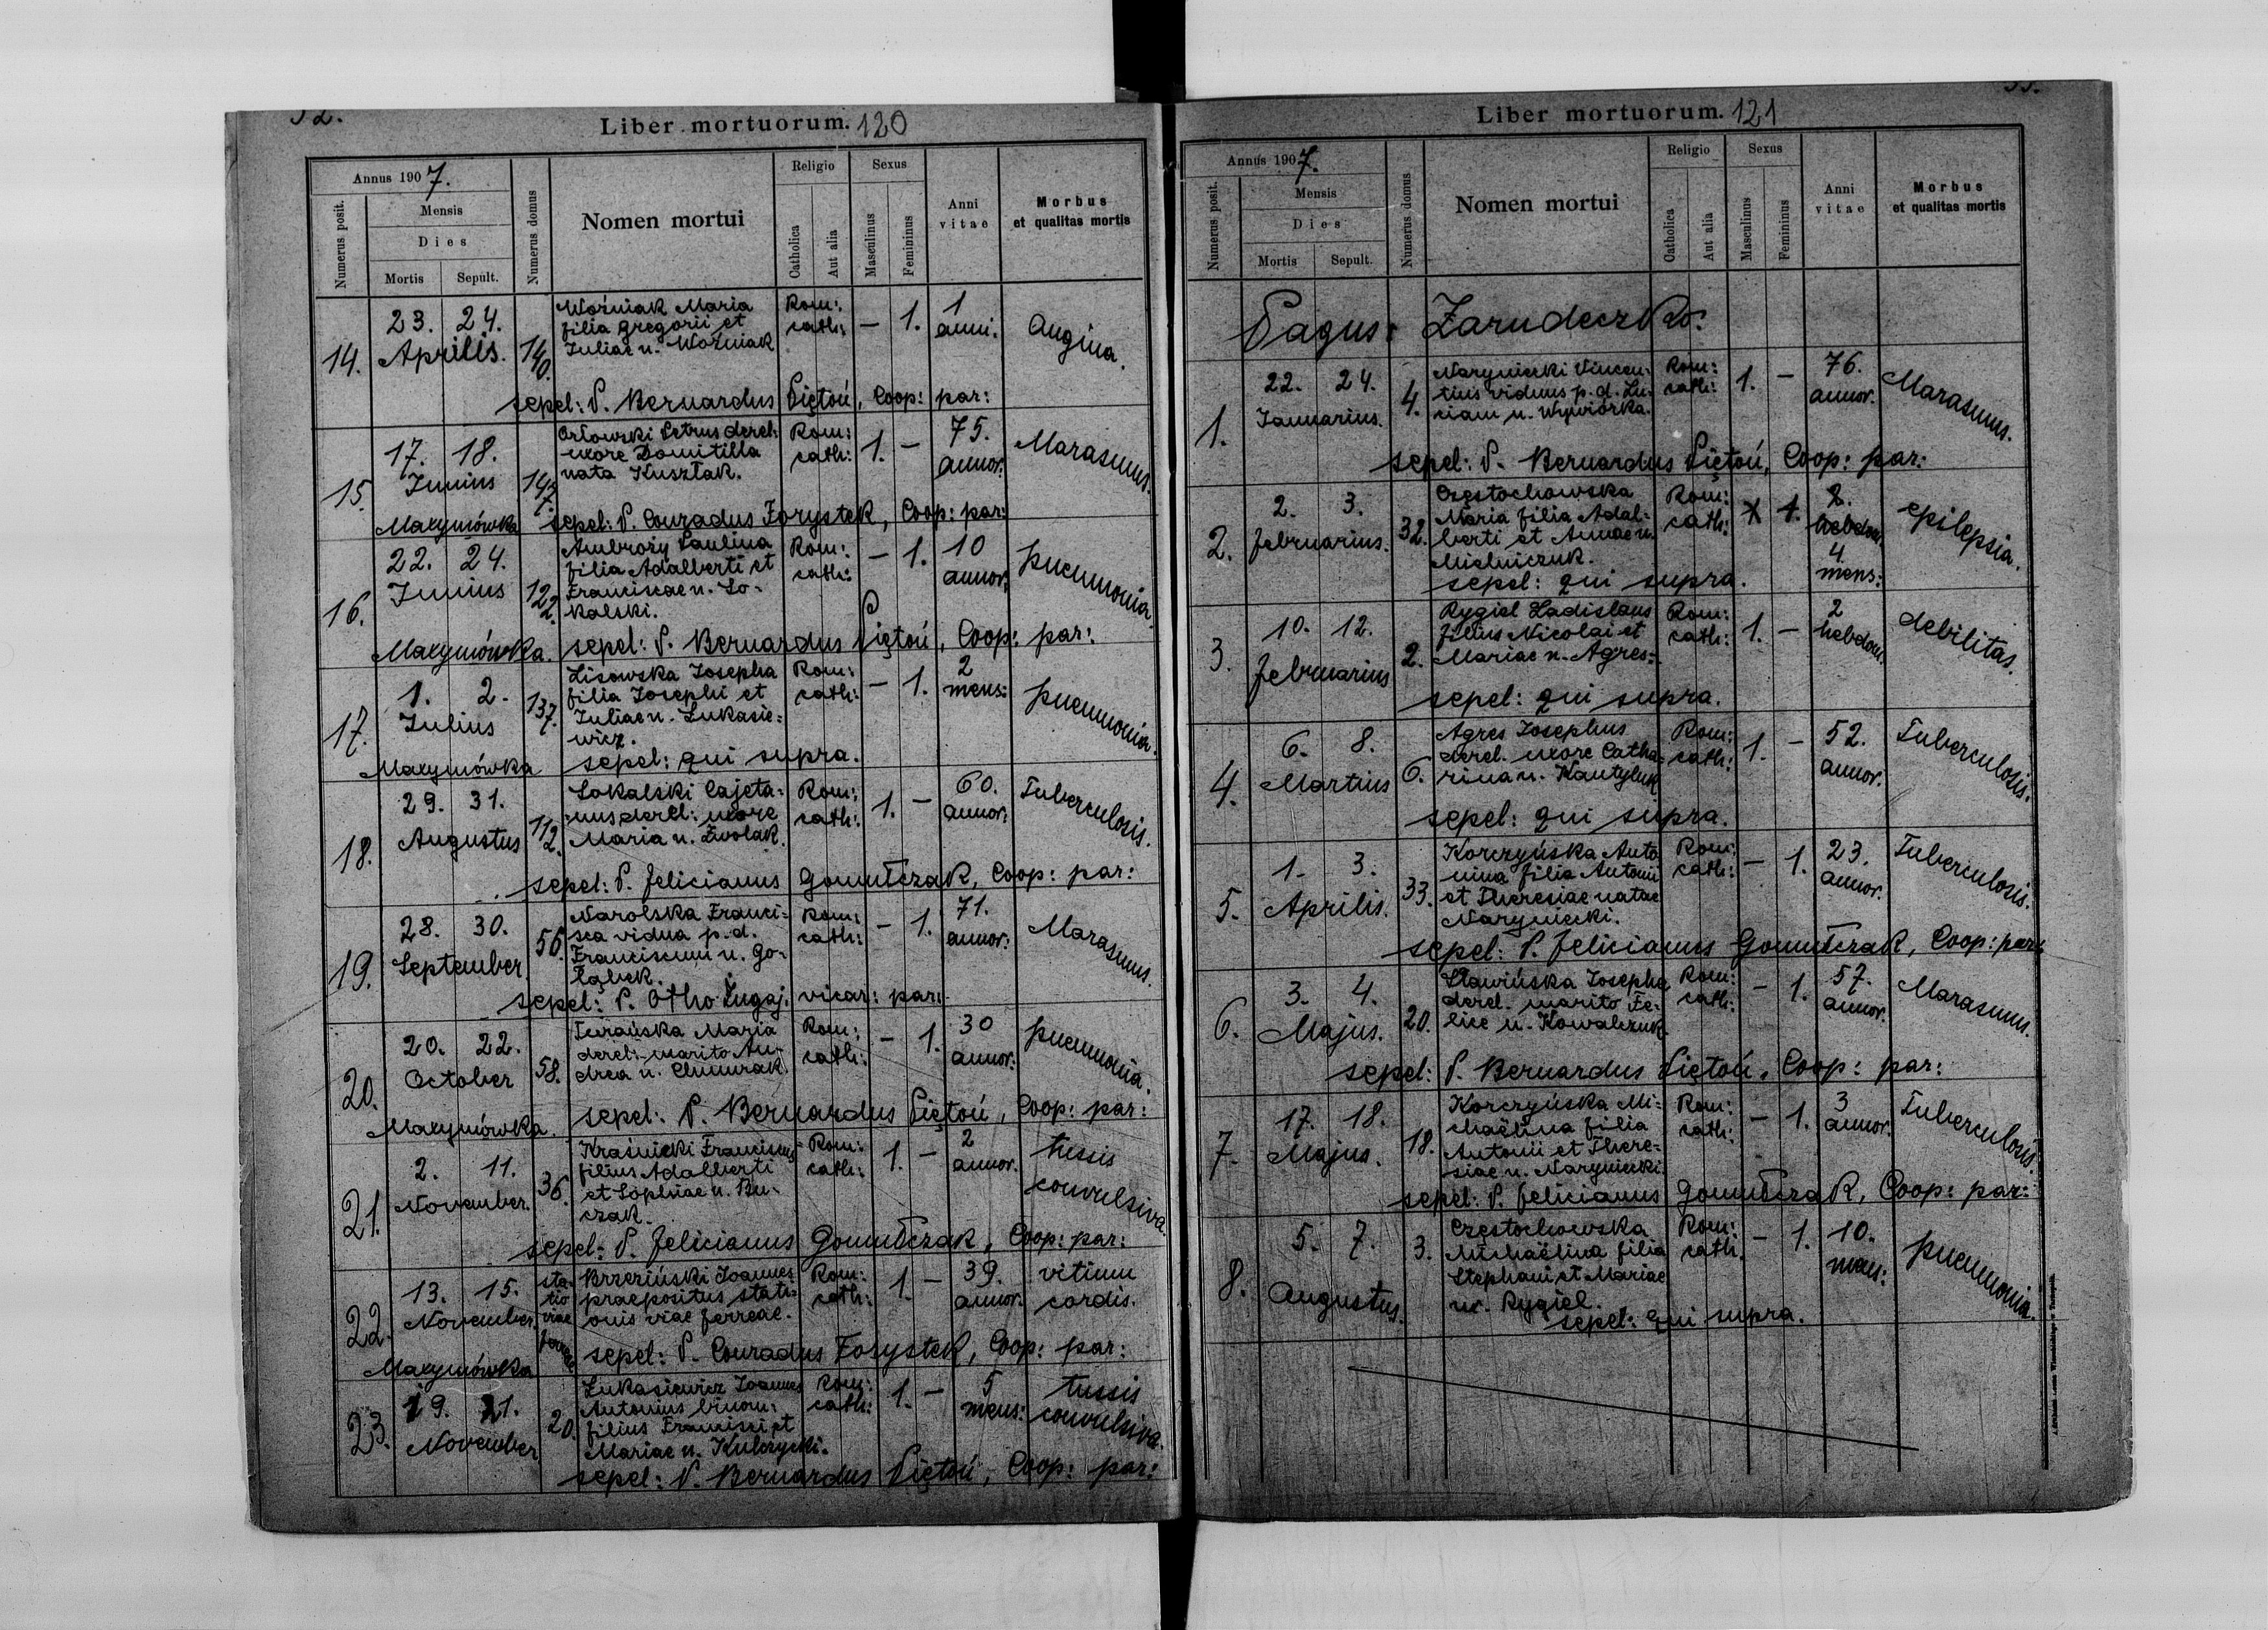 52.
Liber mortuorum. 120
Annus 1907.
Numerus posit.
Mensis
Dies
Mortis
Sepult.
Numerus domus
Nomen mortui
Religio
Catholica
Aut alia
Sexus
Masculinus
Femininus
Anni vitae
Morbus
et qualitas mortis
14. 23. 24. Aprilis. 140.
Woźniak Maria
filia Gregorii et
Juliae n. Woźniak
Rom: cath: — 1. 1 anni. Angina.
sepel: P. Bernardus Piętoń, Coop: par:
15. 17. 18. Junius 147.
Orłowski Petrus derel:
uxore Domitilla
nata Kusztak.
Rom: cath: 1. — 75. annor. Marasmus.
Maxymówka sepel: P. Conradus Forystek, Coop: par:
16. 22. 24. Junius 122.
Ambroży Paulina
filia Adalberti et
Franciscae n. So-
kalski.
Rom: cath: — 1. 10 annor. pneumonia.
Maxymówka. sepel: P. Bernardus Piętoń, Coop: par:
17. 1. 2. Julius 137.
Lisowska Josepha
filia Josephi et
Juliae n. Łukasie=
wicz.
Rom: cath: — 1. 2 mens: pneumonia.
Maxymówka sepel: qui supra.
18. 29. 31. Augustus 112.
Sokalski Cajeta-
nus derel: uxore
Maria n. Zwolak.
Rom: cath: 1. — 60. annor. Tuberculosis.
sepel: P. Felicianus Gomułczak, Coop: par:
19. 28. 30. September 56.
Narolska Franci-
sca vidua p. d.
Franciscum n. Go-
łąbek.
Rom: cath: — 1. 71. annor: Marasmus.
sepel: P. Otho Ługaj. vicar: par:
20. 20. 22. October 58.
Maria
derel: marito An-
drea n. Chmurak.
Rom: cath: — 1. 30 annor: pneumonia.
Maxymówka. sepel: P. Bernardus Piętoń, Coop: par:
21. 2. 11. November. 36.
Kraśnicki Franciscus
filius Adalberti
et Sophiae n. Bu-
czak.
Rom: cath: 1. — 2 annor. tussis convulsiva.
sepel: P. Felicianus Gomułczak, Coop: par:
22. 13. 15. November. statio viae ferreae
Brzeziński Joannes
praepositus stati-
onis viae ferreae.
Rom: cath: 1. — 39. annor. vitium cordis.
Maxymówka sepel: P. Conradus Forystek, Coop: par:
23. 19. 21. November 20.
Łukasiewicz Joannes
Antonius binom:
filius Francisci et
Mariae n. Kulczycki.
Rom: cath: 1. — 5 mens: tussis convulsiva.
sepel: P. Bernardus Piętoń, Coop: par:
53.
Liber mortuorum. 121
Annus 1907.
Numerus posit.
Mensis
Dies
Mortis
Sepult.
Numerus domus
Nomen mortui
Religio
Catholica
Aut alia
Sexus
Masculinus
Femininus
Anni vitae
Morbus
et qualitas mortis
Pagus: Zarudeczko.
1. 22. 24. Januarius. 4.
Naryniecki Vincen-
tius viduus p. d. Lu-
ciam n. Wywiórka.
Rom: cath: 1. — 76. annor. Marasmus.
sepel: P. Bernardus Piętoń, Coop: par:
2. 2. 3. Februarius. 32.
Częstochowska
Maria filia Adal-
berti et Annae n.
Mielniczuk.
Rom: cath: 1. 2. hebdom. 4. mens: epilepsia.
sepel: qui supra.
3. 10. 12. Februarius 2.
Rygiel Ladislaus
filius Nicolai et
Mariae n. Agres.
Rom: cath: 1. — 2 hebdom. debilitas.
sepel: qui supra.
4. 6. 8. Martius 6.
Agres Josephus
derel. uxore Catha-
rina n. Kantyluk
Rom: cath: 1. — 52. annor. Tuberculosis.
sepel: qui supra.
5. 1. 3. Aprilis. 33.
Korczyńska Anto
nina filia Antonii
et Theresiae natae
Naryniecki.
Rom: cath: — 1. 23. annor. Tuberculosis.
sepel: P. Felicianus Gomułczak, Coop: par:
6. 3. 4. Majus. 20.
Sławińska Josepha
derel. marito Fe-
lice n. Kowalczuk
Rom: cath: — 1. 57. annor. Marasmus.
sepel: P. Bernardus Piętoń, Coop: par:
7. 17. 18. Majus. 18.
Korczyńska Mi-
chaëlina filia
Antonii et There-
siae n. Naryniecki.
Rom: cath: — 1. 3 annor. Tuberculosis.
sepel: P. Felicianus Gomułczak, Coop: par:
8. 5. 7. Augustus. 3.
Częstochowska
Michaëlina filia
Stephani et Mariae
n. Rygiel.
Rom: cath: — 1. 10. mens: pneumonia.
sepel: qui supra.